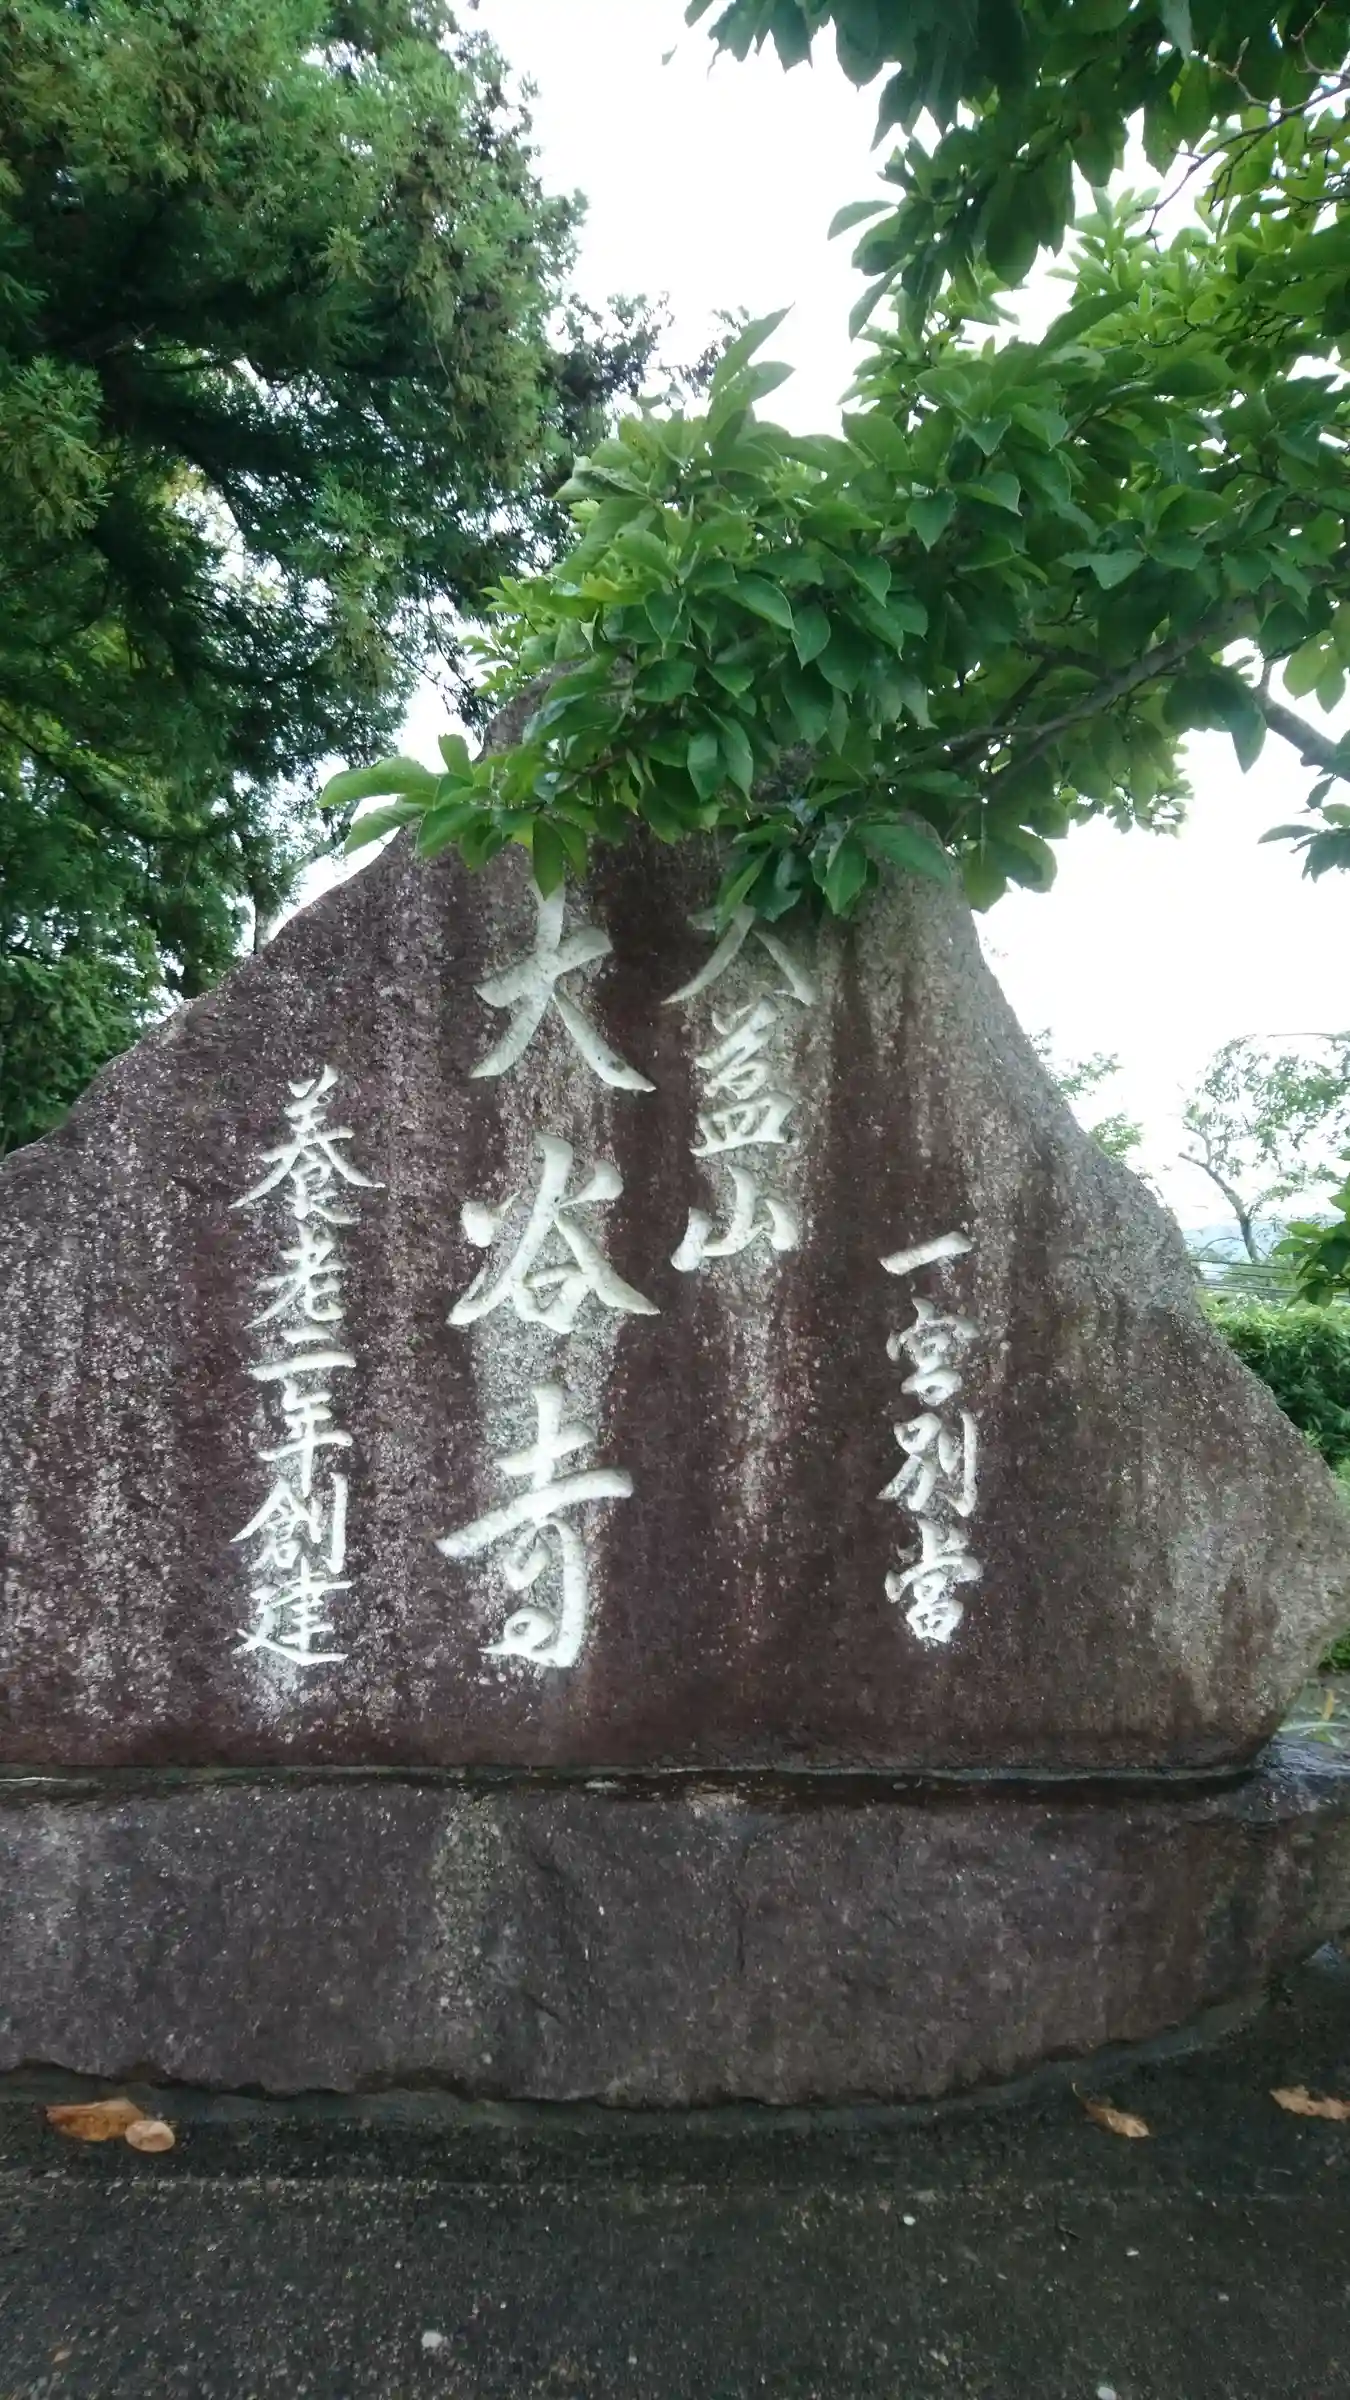 一宮別當
八益山
大谷寺
養老二年創建